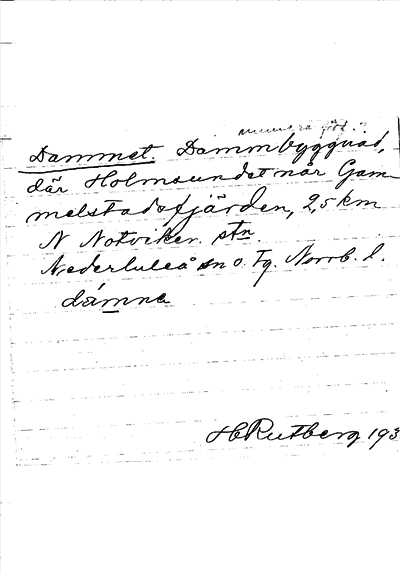 numera förf.?
Dammet. Dammbyggnad,
där Holmsundet når Gam-
melstadsfjärden, 2,5 km
N Notviken stn.
Nederluleå sn o. Tg. Norrb. l.
dámne
H Rutberg 193